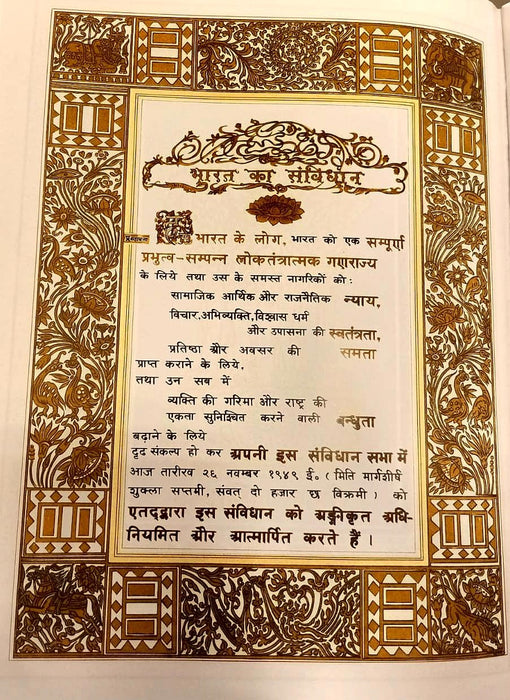 भारत का संविधान
हम भारत के लोग, भारत को एक सम्पूर्ण
प्रभुत्व-सम्पन्न लोकतंत्रात्मक गणराज्य
के लिये तथा उस के समस्त नागरिकों को:
सामाजिक आर्थिक और राजनैतिक न्याय,
विचार,अभिव्यक्ति,विश्वास धर्म
और उपासना की स्वतंत्रता,
प्रतिष्ठा और अवसर की समता
प्राप्त कराने के लिये,
तथा उन सब में
व्यक्ति की गरिमा और राष्ट्र की
एकता सुनिश्चित करने वाली बन्धुता
बढ़ाने के लिये
दृढ़ संकल्प हो कर अपनी इस संविधान सभा में
आज तारीख २६ नवम्बर १९४९ ई. (मिति मार्गशीर्ष
शुक्ला सप्तमी, संवत् दो हजार छ विक्रमी) को
एतद्द्वारा इस संविधान को अङ्गीकृत अधि-
नियमित और आत्मार्पित करते हैं।